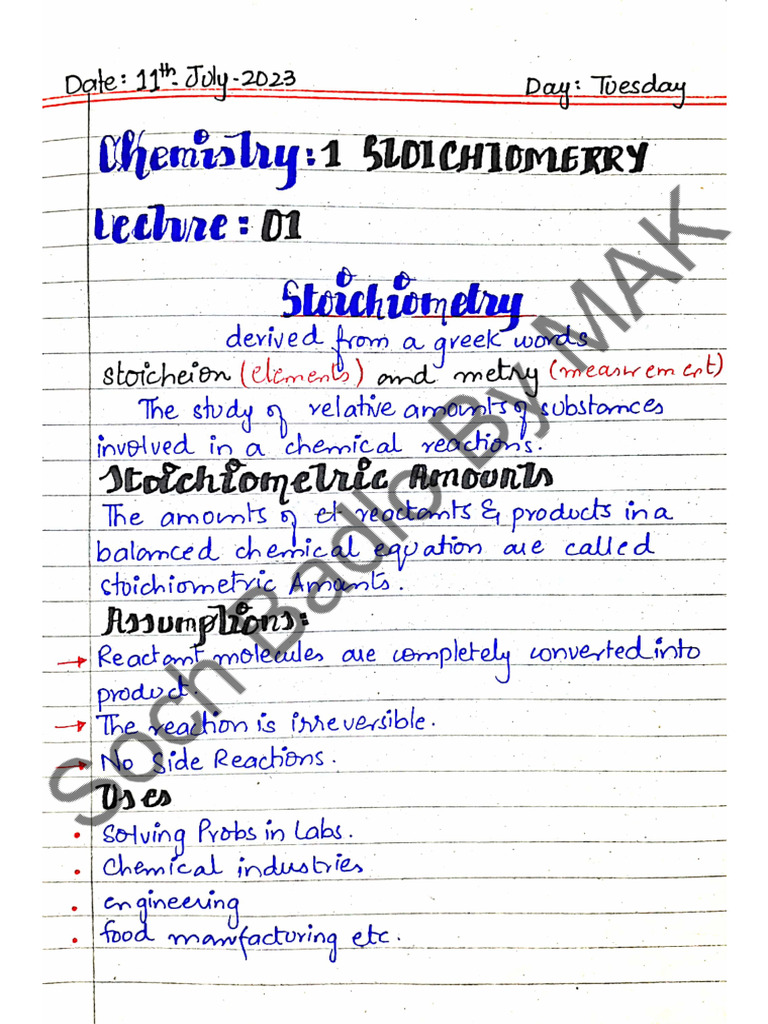 Date: 11th-July-2023 Day: Tuesday
Chemistry: 1 STOICHIOMERRY
Lecture: 01
Stoichiometry
derived from a greek words
stoicheion (elements) and metry (measurement)
The study of relative amounts of substances
involved in a chemical reactions.
Stoichiometric Amounts
The amounts of et reactants & products in a
balanced chemical equation are called
stoichiometric Amants.
Assumptions:
→ Reactant molecules are completely converted into
product.
→ The reaction is irreversible.
→ No Side Reactions.
Uses
• Solving Probs in Labs.
• Chemical industries
• engineering
• food manfacturing etc.
Soch Badlo By MAK